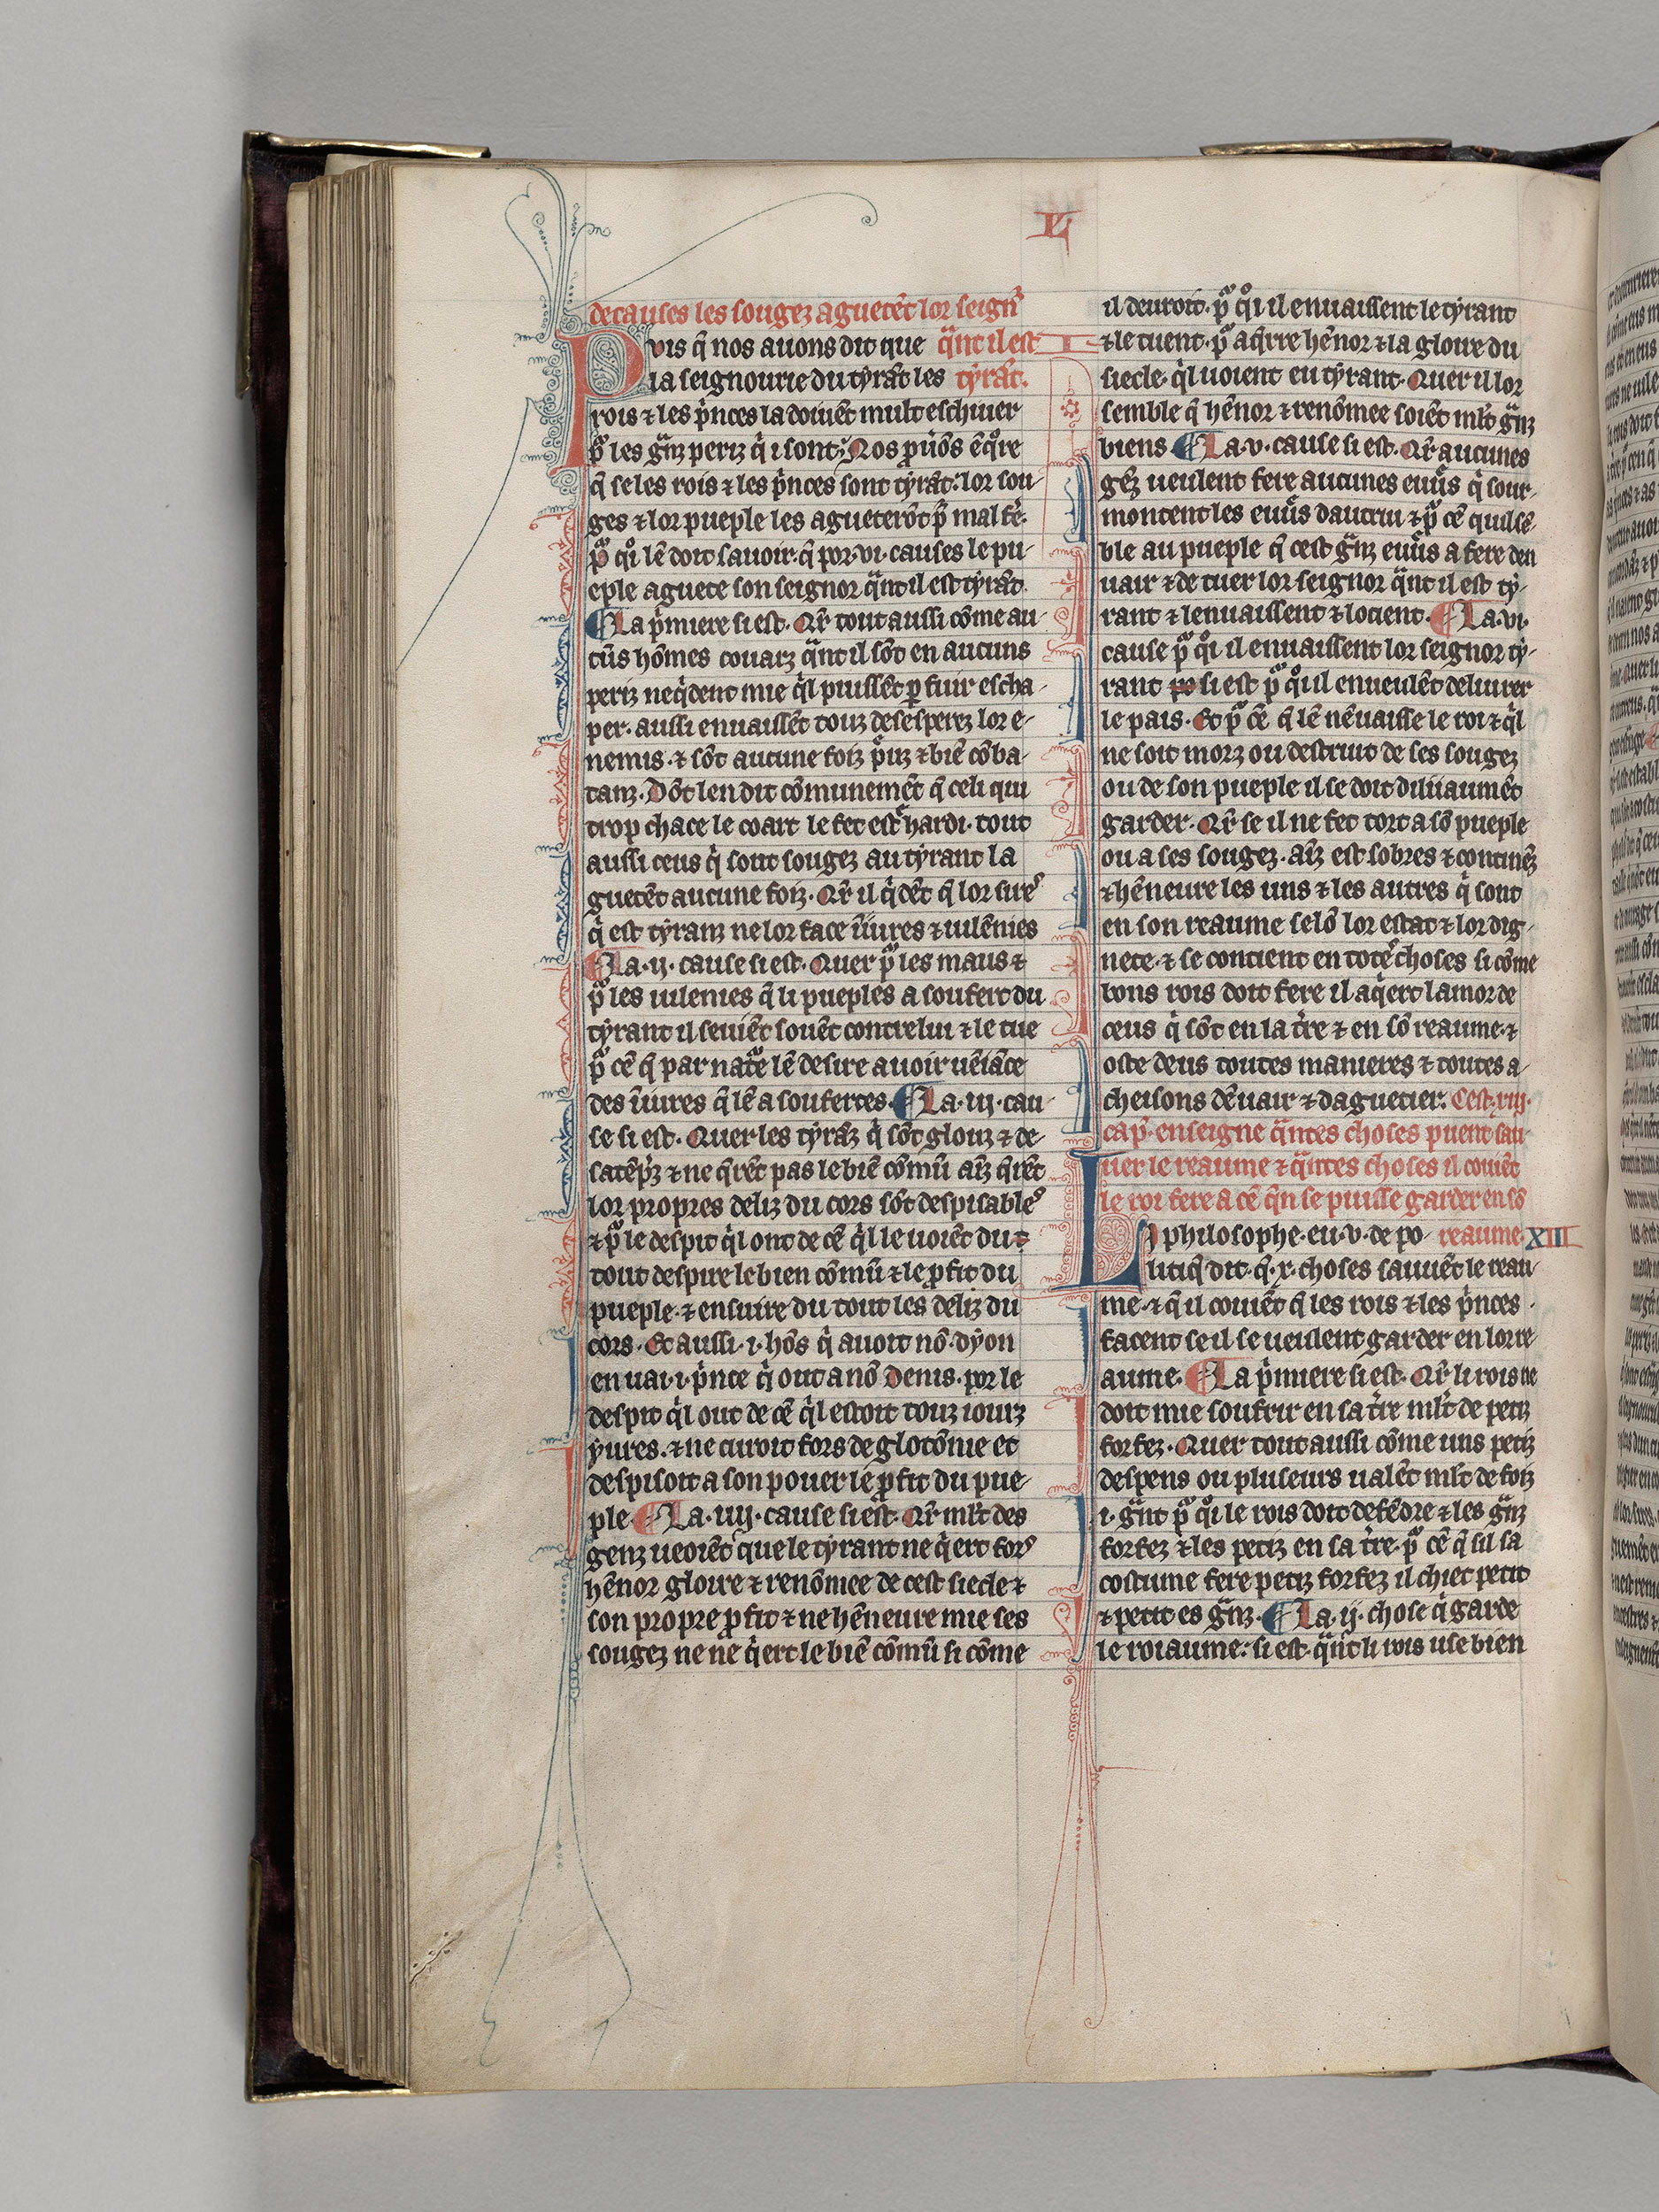 L
de causes les sougez aguetẽt lor seignᷣ
Puis q̃ nos auons dit que q̃nt il est
la seignourie du tyrãt les tyrãt.
rois ⁊ les p̃nces la doiuẽt mult eschiuer
pᷣ les g̃nz periz q̃ i sont. Nos puõs ẽq̃re
q̃ se les rois ⁊ les p̃nces sont tyrãt. lor sou-
ges ⁊ lor pueple les agueterõt p̃ mal fẽ.
pᷣ q̊i lẽ doit sauoir. q̃ por .vi. causes le pu-
eple aguete son seignor q̃nt il est tyrãt
¶ La p̃miere si est. Qr̃ tout aussi cõme au-
cũs hõmes couarz q̃nt il sõt en aucuns
periz ne q̃dent mie q̃l puissẽt ꝑ fuir escha-
per. aussi enuaissẽt touz desesperez lor e-
nemis. ⁊ sõt aucune foiz p̃uz ⁊ biẽ cõba-
tanz. Dõt len dit cõmunemẽt q̃ celi qui
trop chace le coart le fet estᷣ hardi. tout
aussi ceus q̃ sont sougez au tyrant la
guetẽt aucune foiz. Qr̃ il q̃dẽt q̃ lor sire
q̃ est tyranz ne lor face iniures ⁊ uilẽnies
¶ La .ij. cause si est. Quer pᷣ les maus ⁊
pᷣ les uilenies q̃ li pueples a soufert du
tyrant il seuiẽt souẽt contre lui ⁊ le tue
pᷣ cẽ q̃ par natᷣe lẽ desire auoir uẽiãce
des iniures q̃ lẽ a soufertes. ¶ La .iij. cau-
se si est. Quer les tyrãz q̃ sõt glouz ⁊ de-
satẽpᷣz ⁊ ne q̃rẽt pas le biẽ cõmũ aĩz q̃rẽt
lor propres deliz du cors sõt despisable᷒
⁊ pᷣ le despit q̃l ont de cẽ q̃l le uoiẽt du
tout despire le bien cõmũ ⁊ le ꝓfit du
pueple. ⁊ ensuire du tout les deliz du
cors. Et aussi .i. hõs q̃ auoit nõ dyon
en uai .i. p̃nce q̃ out a nõ Denis. por le
despit q̃l out de cẽ q̃l estoit touz iourz
yures. ⁊ ne curoit fors de glotõnie et
despisoit a son pouer le ꝓfit du pue-
ple ¶ La .iiij. cause si est. Qr̃ ml̃t des
genz ueoiẽt que le tyrant ne q̃ert fors
hẽnor gloire ⁊ renõmee de cest siecle ⁊
son propre ꝓfit ⁊ ne hẽneure mie ses
sougez ne ne q̃ert le biẽ cõmũ si cõme
il deuroit. pᷣ q̊i il enuaissent le tyrant
⁊ le tuent. pᷣ aq̃rre hẽnor ⁊ la gloire du
siecle. q̃l uoient eu tyrant. Quer il lor
semble q̃ hẽnor ⁊ renõmee soiẽt ml̃t g̃nz
biens ¶ La .v. cause si est. Qr̃ aucunes
gẽz ueulent fere aucunes euũs q̃ sour-
montent les euũs dautrui ⁊ pᷣ cẽ quil sẽ-
ble au pueple q̃ cest g̃nz euũs a fere den
uair ⁊ de tuer lor seignor q̃nt il est ty-
rant ⁊ lenuaissent ⁊ locient. ¶ La .vi.
cause pᷣ q̊i il enuaissent lor seignor ty-
rant si est pᷣ q̊i il en ueulẽt deliurer
le pais. Et pᷣ cẽ q̃ lẽ nẽuaisse le roi ⁊ q̃l
ne soit morz ou destruit de ses sougez
ou de son pueple il se doit diliiaumẽt
garder. Qr̃ se il ne fet tort a sõ pueple
ou a ses sougez. aĩz est sobres ⁊ continẽz
⁊ hẽneure les uns ⁊ les autres q̃ sont
en son reaume selõ lor estat ⁊ lor dig-
nete. ⁊ se contient en totẽ choses si cõme
bons rois doit fere il aq̃ert lamor de
ceus q̃ sõt en la tr̃e ⁊ en sõ reaume. ⁊
oste deus toutes manieres ⁊ toutes a-
cheisons dẽuair ⁊ daguetier. Cest .xiij.
cap̃. enseigne q̃ntes choses puent sau-
uer le reaume ⁊ q̃ntes choses il couiẽt
le roi fere a cẽ q̃n se puisse garder en sõ
Li philosophe eu .v. de po- reaume. XIII
lutiq̃ dit. q̃ .x. choses sauuẽt le reau-
me. ⁊ q̃ il couiẽt q̃ les rois ⁊ les p̃nces
facent se il se ueulent garder en lor re
aume. ¶ La p̃miere si est. Qr̃ li rois ne
doit mie soufrir en sa tr̃e ml̃t de petiz
forfez. Quer tout aussi cõme uns petiz
despens ou pluseurs ualẽt ml̃t de foiz
.i. g̃nt pᷣ q̊i le rois doit defẽdre ⁊ les g̃nz
forfez ⁊ les petiz en sa tr̃e. pᷣ cẽ q̃ sil sa
costume fere petiz forfez il chiet petit
⁊ petit es g̃nz. ¶ La .ij. chose q̃ garde
le roiaume. si est. q̃nt li rois use bien